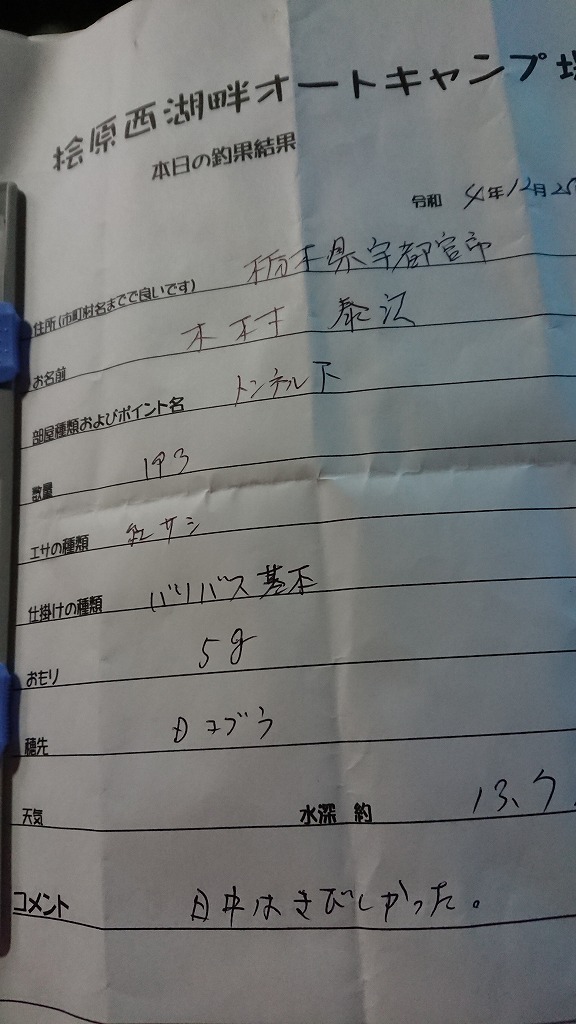 桧原西湖畔オートキャンプ場
本日の釣果結果
令和 4年12月25
住所(市町村名までで良いです) 栃木県宇都宮市
お名前 木村 泰
部屋種類およびポイント名 トンネル下
数量 193
エサの種類 紅サシ
仕掛けの種類 バリバス基本
おもり 5g
穂先
天気 水深 約 13.7
コメント 日中はきびしかった。